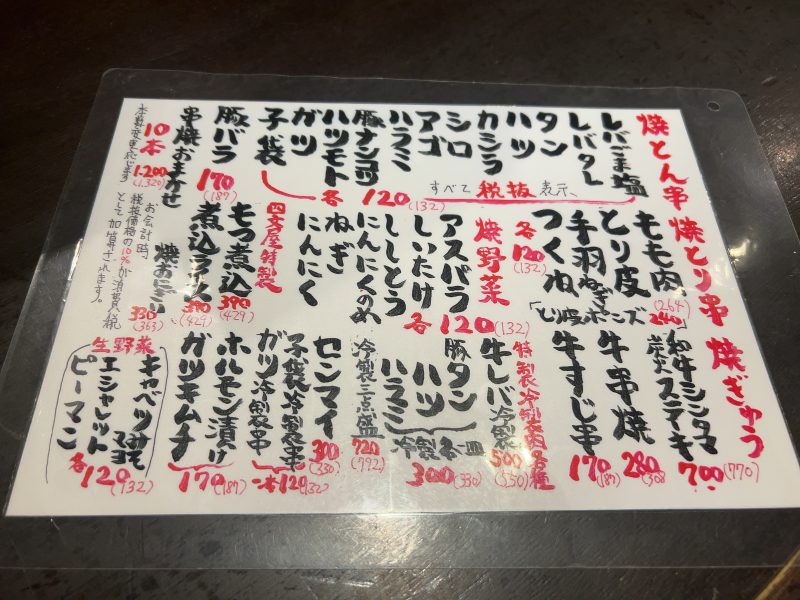 焼とん串
レバごま塩
レバタレ
タン
ハツ
カシラ
シロ
アゴ
ハラミ
豚ナンコツ
ハツモト
ガツ
子袋
各120
(132)
すべて税抜表示、
豚バラ
170
(187)
串焼おまかせ
10本
1,200
(1,320)
本数変更応じます
焼とり串
もも肉
とり皮
手羽
つくね
各120
(132)
「とり皮ねぎポン酢」
240
(264)
焼野菜
アスパラ
しいたけ
ししとう
にんにくのめ
ねぎ
にんにく
各120
(132)
四文屋特製
もつ煮込
390
(429)
煮込ライス
390
(429)
焼おにぎり
330
(363)
お会計時、
税抜価格の10%が消費税
として加算されます。
焼ぎゅう
和牛シンタマ
炭火ステーキ
700
(770)
牛串焼
280
(308
牛すじ串
170
(187)
特製冷製肉各種
牛レバ冷製
500
(550)
豚タン
ハツ
ハラミ
冷製各一皿
300
(330)
冷製二点盛
720
(792)
センマイ
300
(330)
子袋冷製串
ガツ冷製串
一本120
(132
ホルモン漬け
ガツキムチ
170
(187)
生野菜
キャベツみそマヨ
エシャレット
ピーマン
各120
(132)